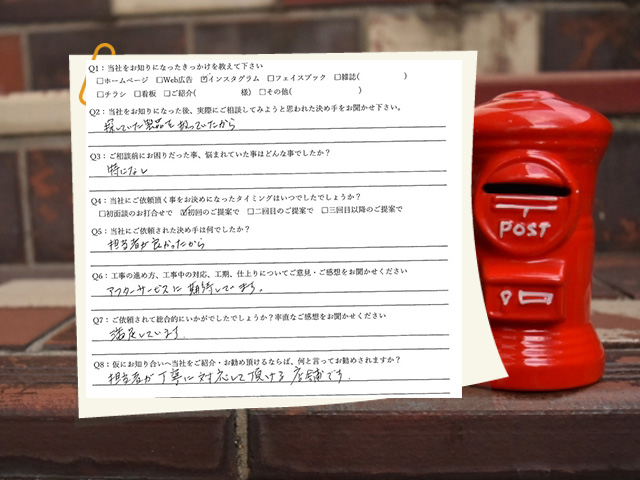 Q1：当社をお知りになったきっかけを教えて下さい
□ホームページ □Web広告 ☑インスタグラム □フェイスブック □雑誌( )
□チラシ □看板 □ご紹介( 様) □その他( )
Q2：当社をお知りになった後、実際にご相談してみようと思われた決め手をお聞かせ下さい。
探していた製品を扱っていたから
Q3：ご相談前にお困りだった事、悩まれていた事はどんな事でしたか？
特になし
Q4：当社にご依頼頂く事をお決めになったタイミングはいつでしたでしょうか？
□初面談のお打合せで ☑初回のご提案で □二回目のご提案で □三回目以降のご提案で
Q5：当社にご依頼された決め手は何でしたか？
担当者が良かったから
Q6：工事の進め方、工事中の対応、工期、仕上りについてご意見・ご感想をお聞かせください
アフターサービスに期待しています。
Q7：ご依頼されて総合的にいかがでしたでしょうか？率直なご感想をお聞かせください
満足しています.
Q8：仮にお知り合いへ当社をご紹介・お勧め頂けるならば、何と言ってお勧めされますか？
担当者が丁寧に対応して頂ける店舗です.
POST